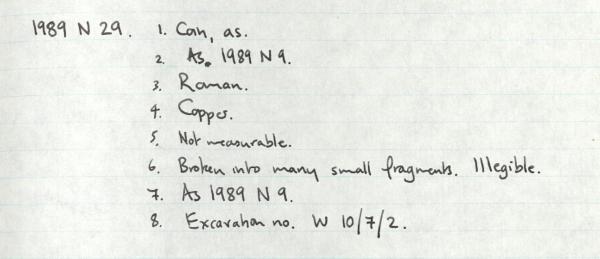 1989 N 29. 1. Coin, as.
2. As. 1989 N 9.
3. Roman.
4. Copper.
5. Not measurable.
6. Broken into many small fragments. Illegible.
7. As 1989 N 9.
8. Excavation no. W 10/7/2.